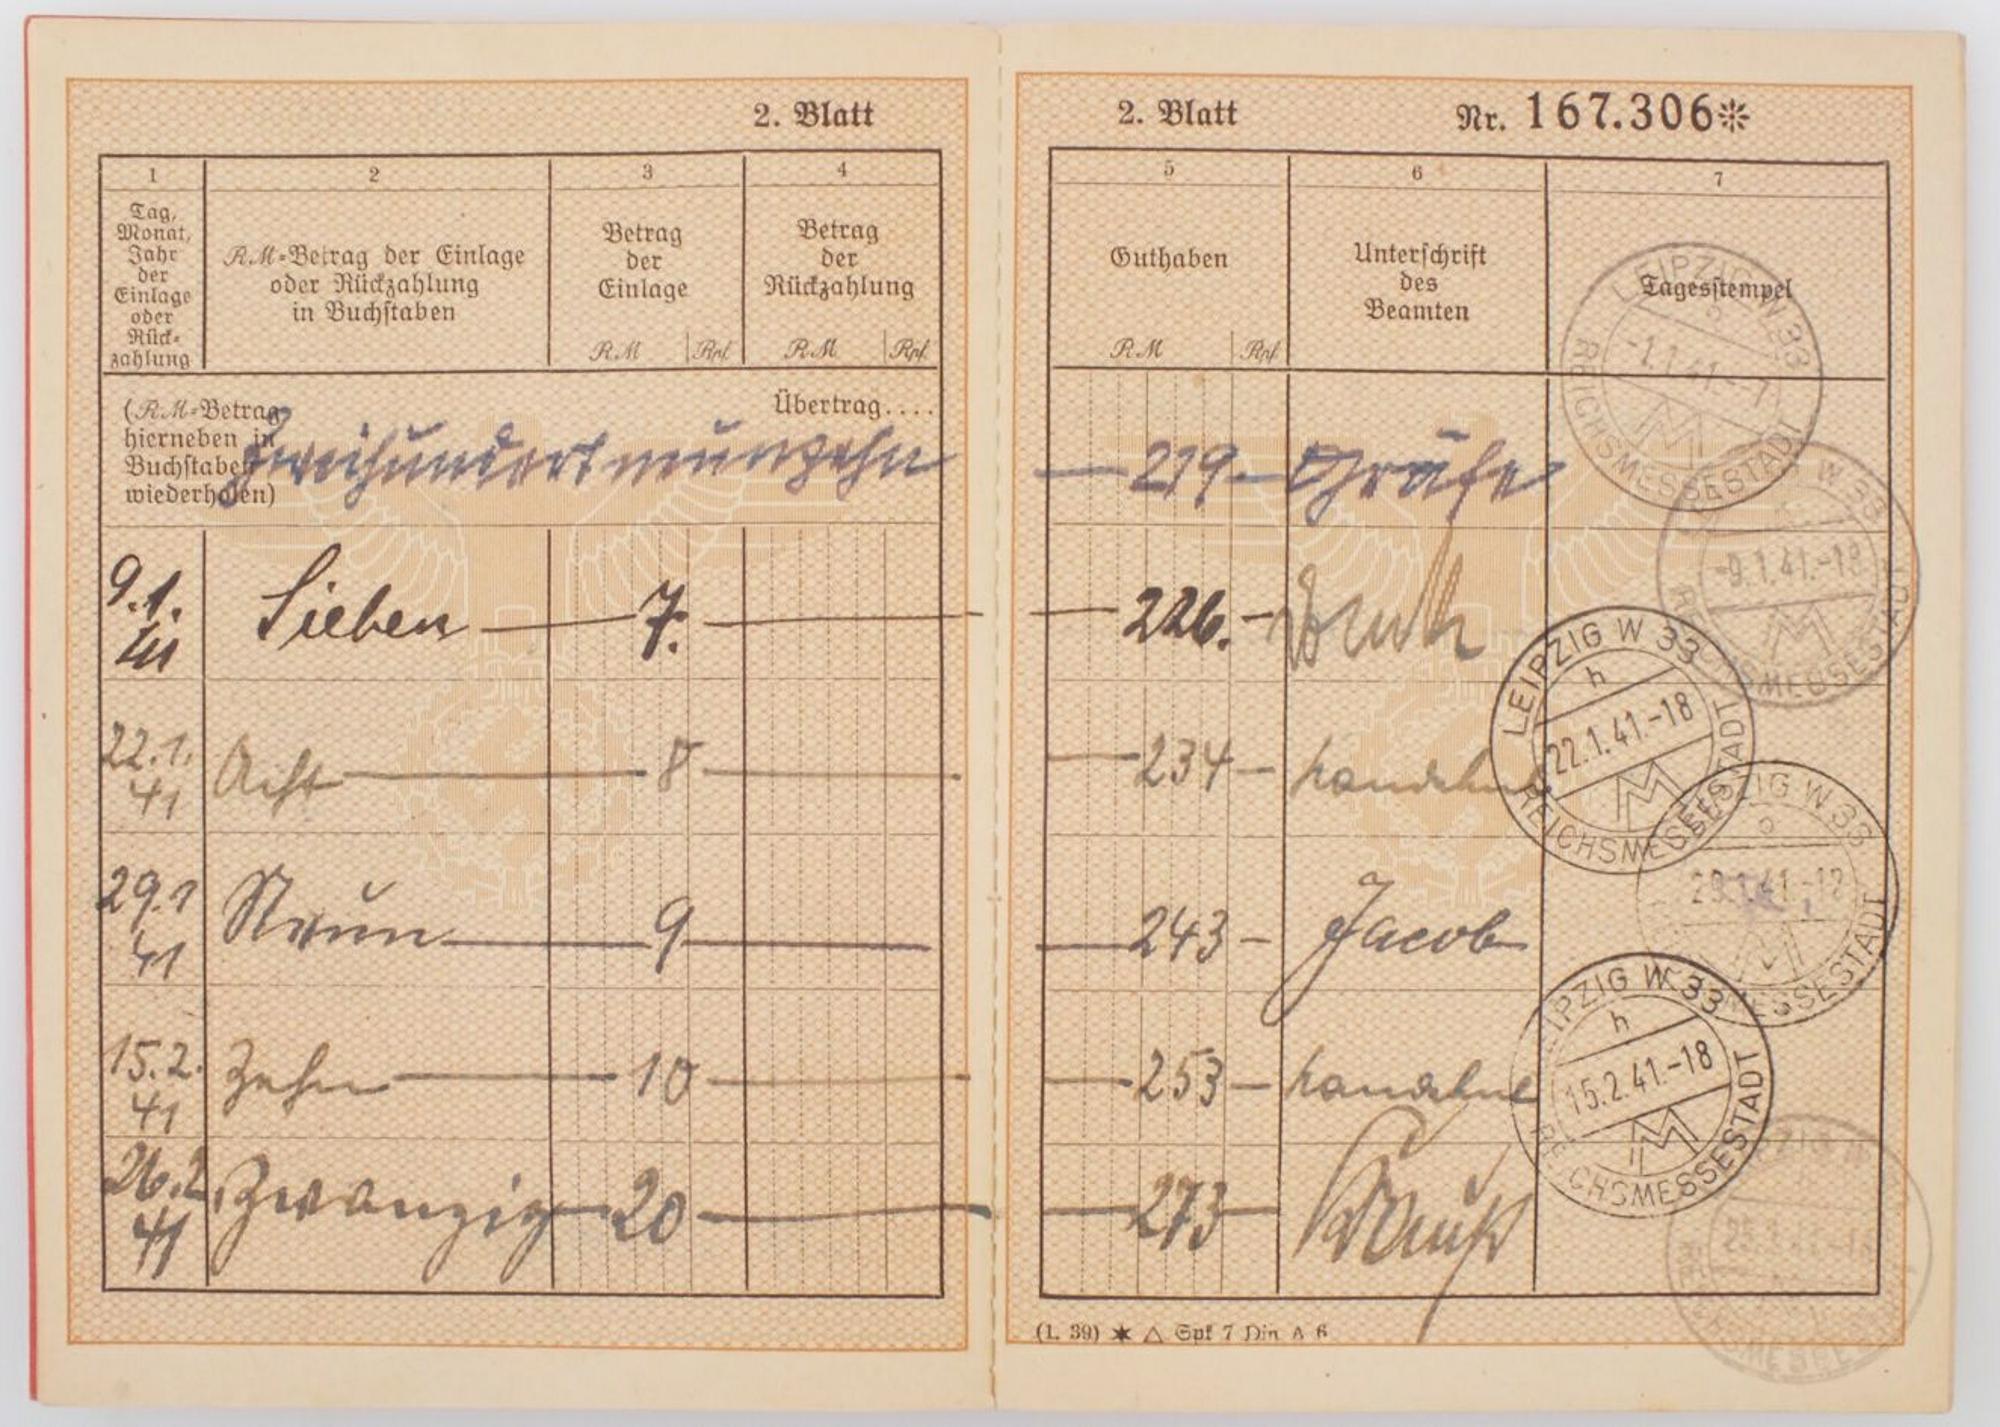 2. Blatt
1 2 3 4
Tag,
Monat,
Jahr
der
Einlage
oder
Rück-
zahlung
RM-Betrag der Einlage
oder Rückzahlung
in Buchstaben
Betrag
der
Einlage
RM Rpf.
Betrag
der
Rückzahlung
RM Rpf.
(RM-Betrag
hierneben in
Buchstaben
wiederholen)
Übertrag....
Zweihundertneunzehn
9.1.
41
Sieben — 7. —
22.1.
41
Acht — 8 —
29.1
41
Neun — 9 —
15.2.
41
Zehn — 10 —
26.2
41
Zwanzig — 20 —
2. Blatt Nr. 167.306*
5 6 7
Guthaben
RM Rpf.
Unterschrift
des
Beamten
Tagesstempel
— 219 — Gräfe
— 226. —
— 234 —
— 243 — Jacob
— 253 —
— 273 —
LEIPZIG W 33
-1.1.41.-
REICHSMESSESTADT
W 33
-9.1.41.-18
REICHSMESSESTADT
LEIPZIG W 33
h
22.1.41.-18
REICHSMESSESTADT
LEIPZIG W 33
29.1.41.-12
MESSESTADT
LEIPZIG W 33
h
15.2.41.-18
REICHSMESSESTADT
(1. 39) ✶ △ Spf 7 Din A 6